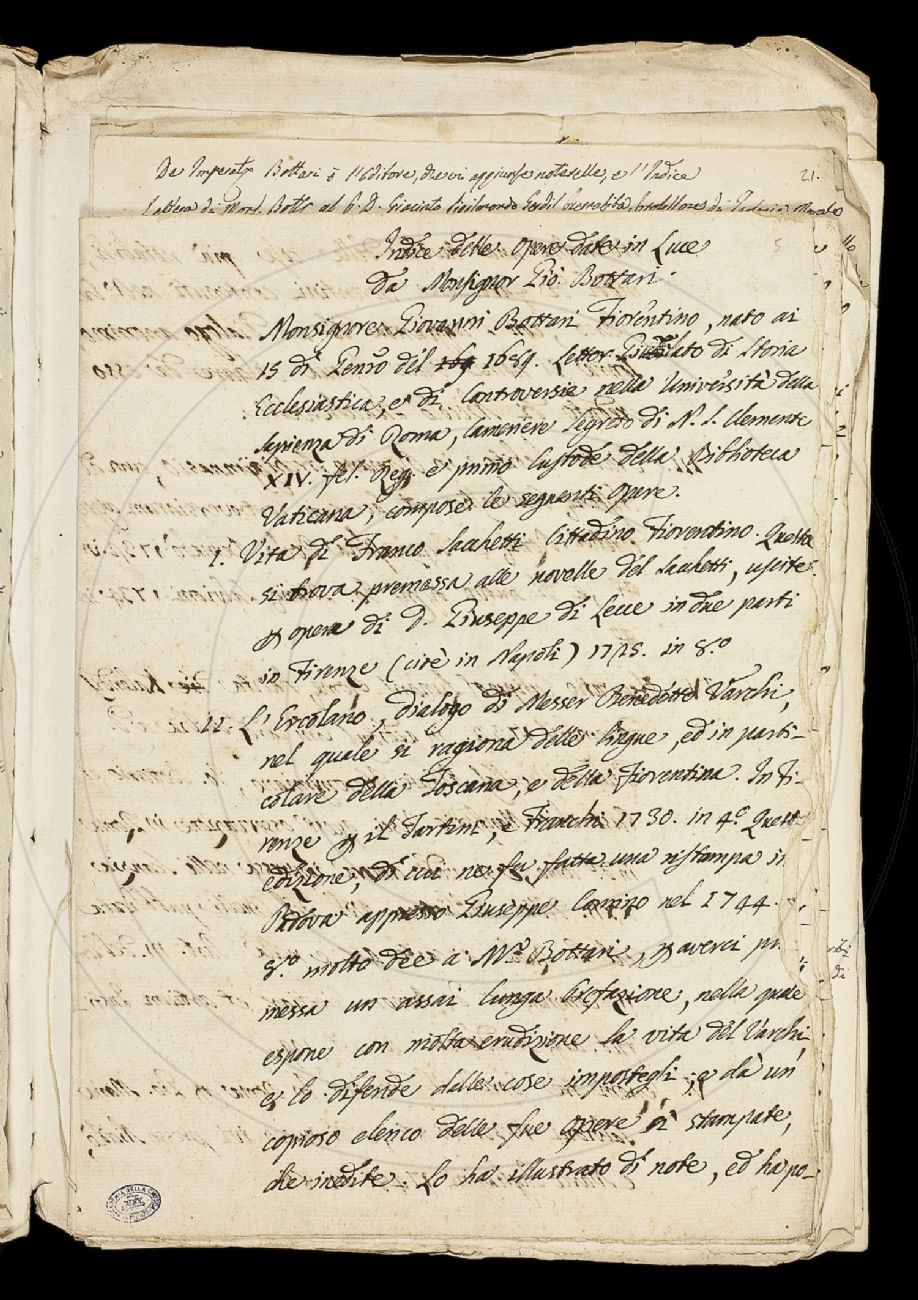 De Imperat. Bottari è l'Editore, che vi aggiunse noterelle, e l'Indice
21.
Lettera di Mons. Bott. al P. D. Giacinto Sigismondo Gerdil Barnabita
5
Indice delle Opere date in Luce
Da Monsignor Gio. Bottari.
Monsignore Giovanni Bottari Fiorentino, nato ai
15 di Genro del 169 1689. Lettor Giubilato di Storia
Ecclesiastica, e di Controversie nella Università della
Sapienza di Roma, Cameriere Segreto di N. S. Clemente
XIV. fel. Reg. e primo Custode della Biblioteca
Vaticana, compose le seguenti Opere.
1. Vita di Franco Sacchetti Cittadino Fiorentino. Questa
si trova premessa alle novelle del Sacchetti, uscite
p opera di D. Giuseppe di Lecce in due parti
in Firenze (cioè in Napoli) 1725. in 8.o
11. L'Ercolano, dialogo di Messer Benedetto Varchi,
nel quale si ragiona delle lingue, ed in parti-
colare della Toscana, e della Fiorentina. In Fi-
renze p il Tartini, e Franchi 1730. in 4.o Quest
edizione, di cui ne fu fatta una ristampa in
Padova appresso Giuseppe Comino nel 1744.
8.o molto dee a Mr. Bottari, p averci pr
messa un assai lunga Prefazione, nella quale
espone con molta erudizione la vita del Varchi
e lo difende dalle cose impostegli; e dà un
copioso elenco delle sue opere sì stampate,
che inedite. Lo ha illustrato di note, ed ha po-